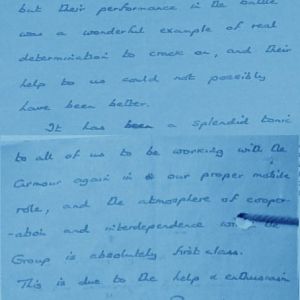 but their performance in the battle
was a wonderful example of real
determination to crack on, and their
help to us could not possibly
have been better.
It has been a splendid tonic
to all of us to be working with the
Armour again in our proper mobile
role, and the atmosphere of cooper-
-ation and interdependence
Group is absolutely first class.
This is due to the help & enthusiasm